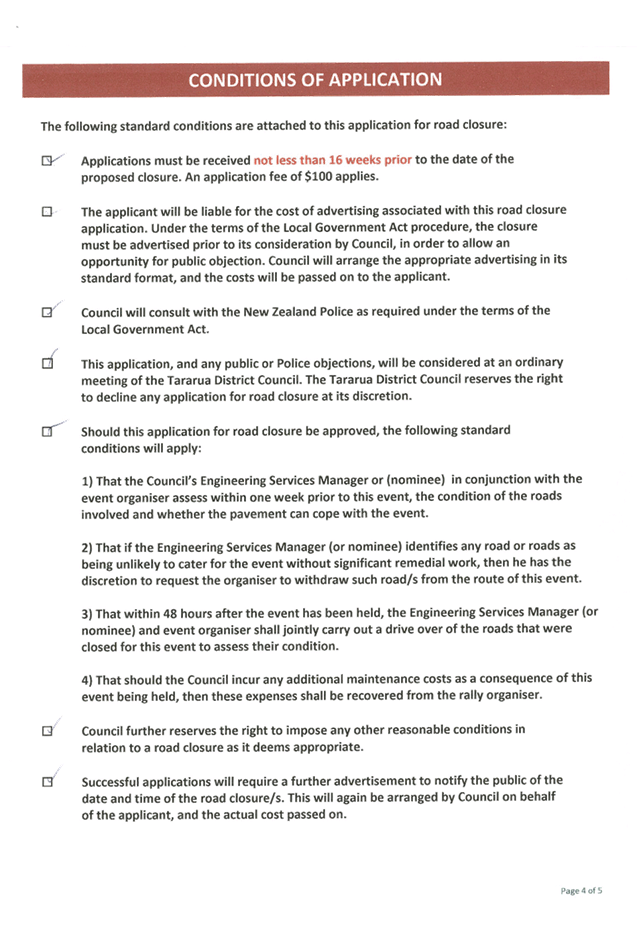 CONDITIONS OF APPLICATION
The following standard conditions are attached to this application for road closure:
Applications must be received not less than 16 weeks prior to the date of the
proposed closure. An application fee of $100 applies.
The applicant will be liable for the cost of advertising associated with this road closure
application. Under the terms of the Local Government Act procedure, the closure
must be advertised prior to its consideration by Council, in order to allow an
opportunity for public objection. Council will arrange the appropriate advertising in its
standard format, and the costs will be passed on to the applicant.
Council will consult with the New Zealand Police as required under the terms of the
Local Government Act.
This application, and any public or Police objections, will be considered at an ordinary
meeting of the Tararua District Council. The Tararua District Council reserves the right
to decline any application for road closure at its discretion.
Should this application for road closure be approved, the following standard
conditions will apply:
1) That the Council's Engineering Services Manager or (nominee) in conjunction with the
event organiser assess within one week prior to this event, the condition of the roads
involved and whether the pavement can cope with the event.
2) That if the Engineering Services Manager (or nominee) identifies any road or roads as
being unlikely to cater for the event without significant remedial work, then he has the
discretion to request the organiser to withdraw such road/s from the route of this event.
3) That within 48 hours after the event has been held, the Engineering Services Manager (or
nominee) and event organiser shall jointly carry out a drive over of the roads that were
closed for this event to assess their condition.
4) That should the Council incur any additional maintenance costs as a consequence of this
event being held, then these expenses shall be recovered from the rally organiser.
Council further reserves the right to impose any other reasonable conditions in
relation to a road closure as it deems appropriate.
Successful applications will require a further advertisement to notify the public of the
date and time of the road closure/s. This will again be arranged by Council on behalf
of the applicant, and the actual cost passed on.
Page 4 of 5